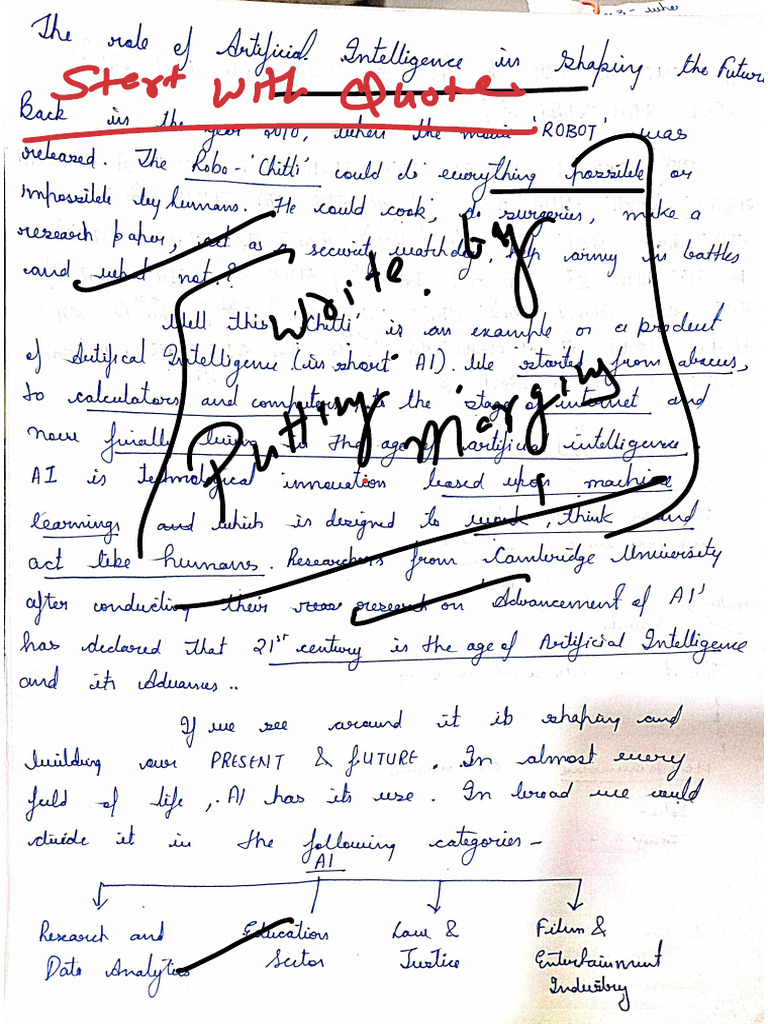 The role of Artificial Intelligence in shaping the Future
Start with Quote
Back in the year 2010, when the movie 'ROBOT' was
released. The Robo-'Chitti' could do everything possible or
impossible by humans. He could cook, do surgeries, make a
research paper, act as a security watchdog, help army in battles
and what not?
Write by
Putting Margins
Well this 'Chitti' is an example or a product
of Artifical Intelligence (in short AI). We started from abacus,
to calculators and computers to the stage of internet and
now finally living in the age of artificial intelligence.
AI is technological innovation based upon machine
learnings and which is designed to work, think and
act like humans. Researchers from Cambridge University
after conducting their research on Advancement of AI'
has declared that 21st century is the age of Artificial Intelligence
and its Advances..
If we see around it is shaping and
building our PRESENT & FUTURE. In almost every
field of life, AI has its use. In broad we could
divide it in the following categories-
AI
Research and Education Law & Film &
Data Analytics Sector Justice Entertainment
Industry